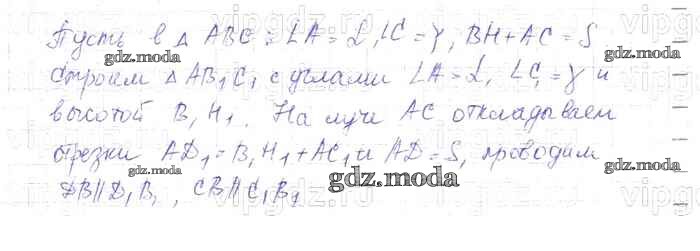 Пусть в △ ABC: ∠A = α, ∠C = γ, BH + AC = S
Строим △ AB₁C₁ с углами ∠A = α, ∠C₁ = γ и
высотой B₁H₁. На луче AC откладываем
отрезки AD₁ = B₁H₁ + AC₁ и AD = S, проводим
DB ∥ D₁B₁, CB ∥ C₁B₁
gdz.moda
gdz.moda
gdz.moda
gdz.moda
gdz.moda
gdz.moda
vipgdz
vipgdz
vipgdz